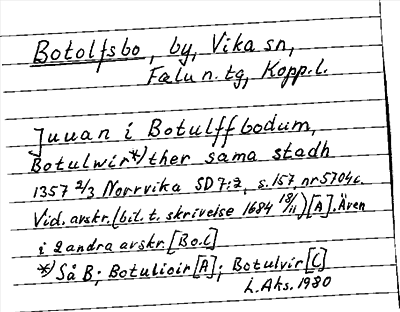 Botolfsbo, by, Vika sn,
Falu n. tg, Kopp.l.
Juuan i Botulffbodum,
Botulwir*) ther sama stadh
1357 2/3 Norrvika SD 7:2, s.157, nr 5704c.
Vid. avskr. (bil. t. skrivelse 1684 18/11) [A]. Även
i 2 andra avskr. [Bo.C]
*) Så B; Botulioir [A]; Botulvir [C]
L.Aks. 1980